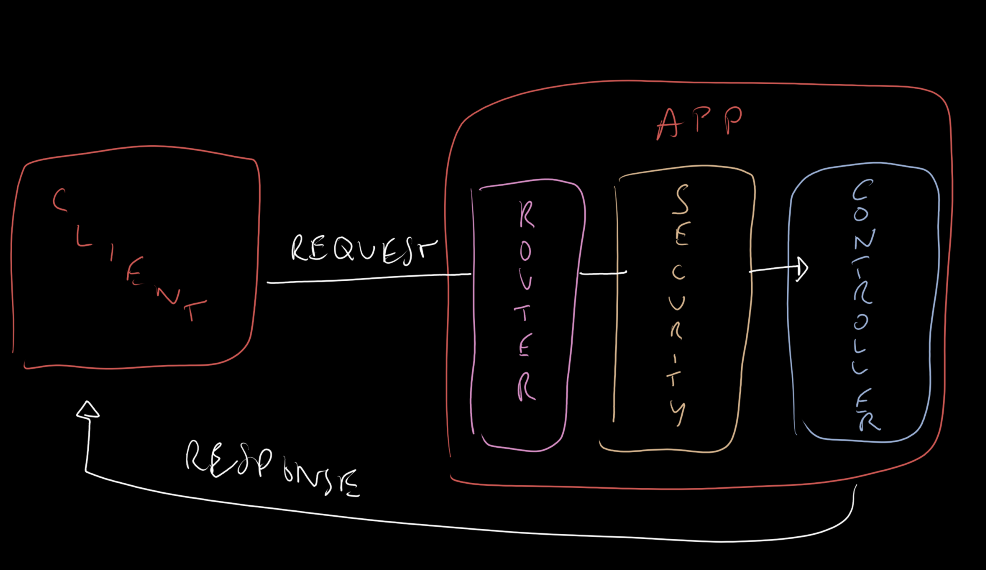 APP
CLIENT
REQUEST
ROUTER
SECURITY
CONTROLLER
RESPONSE